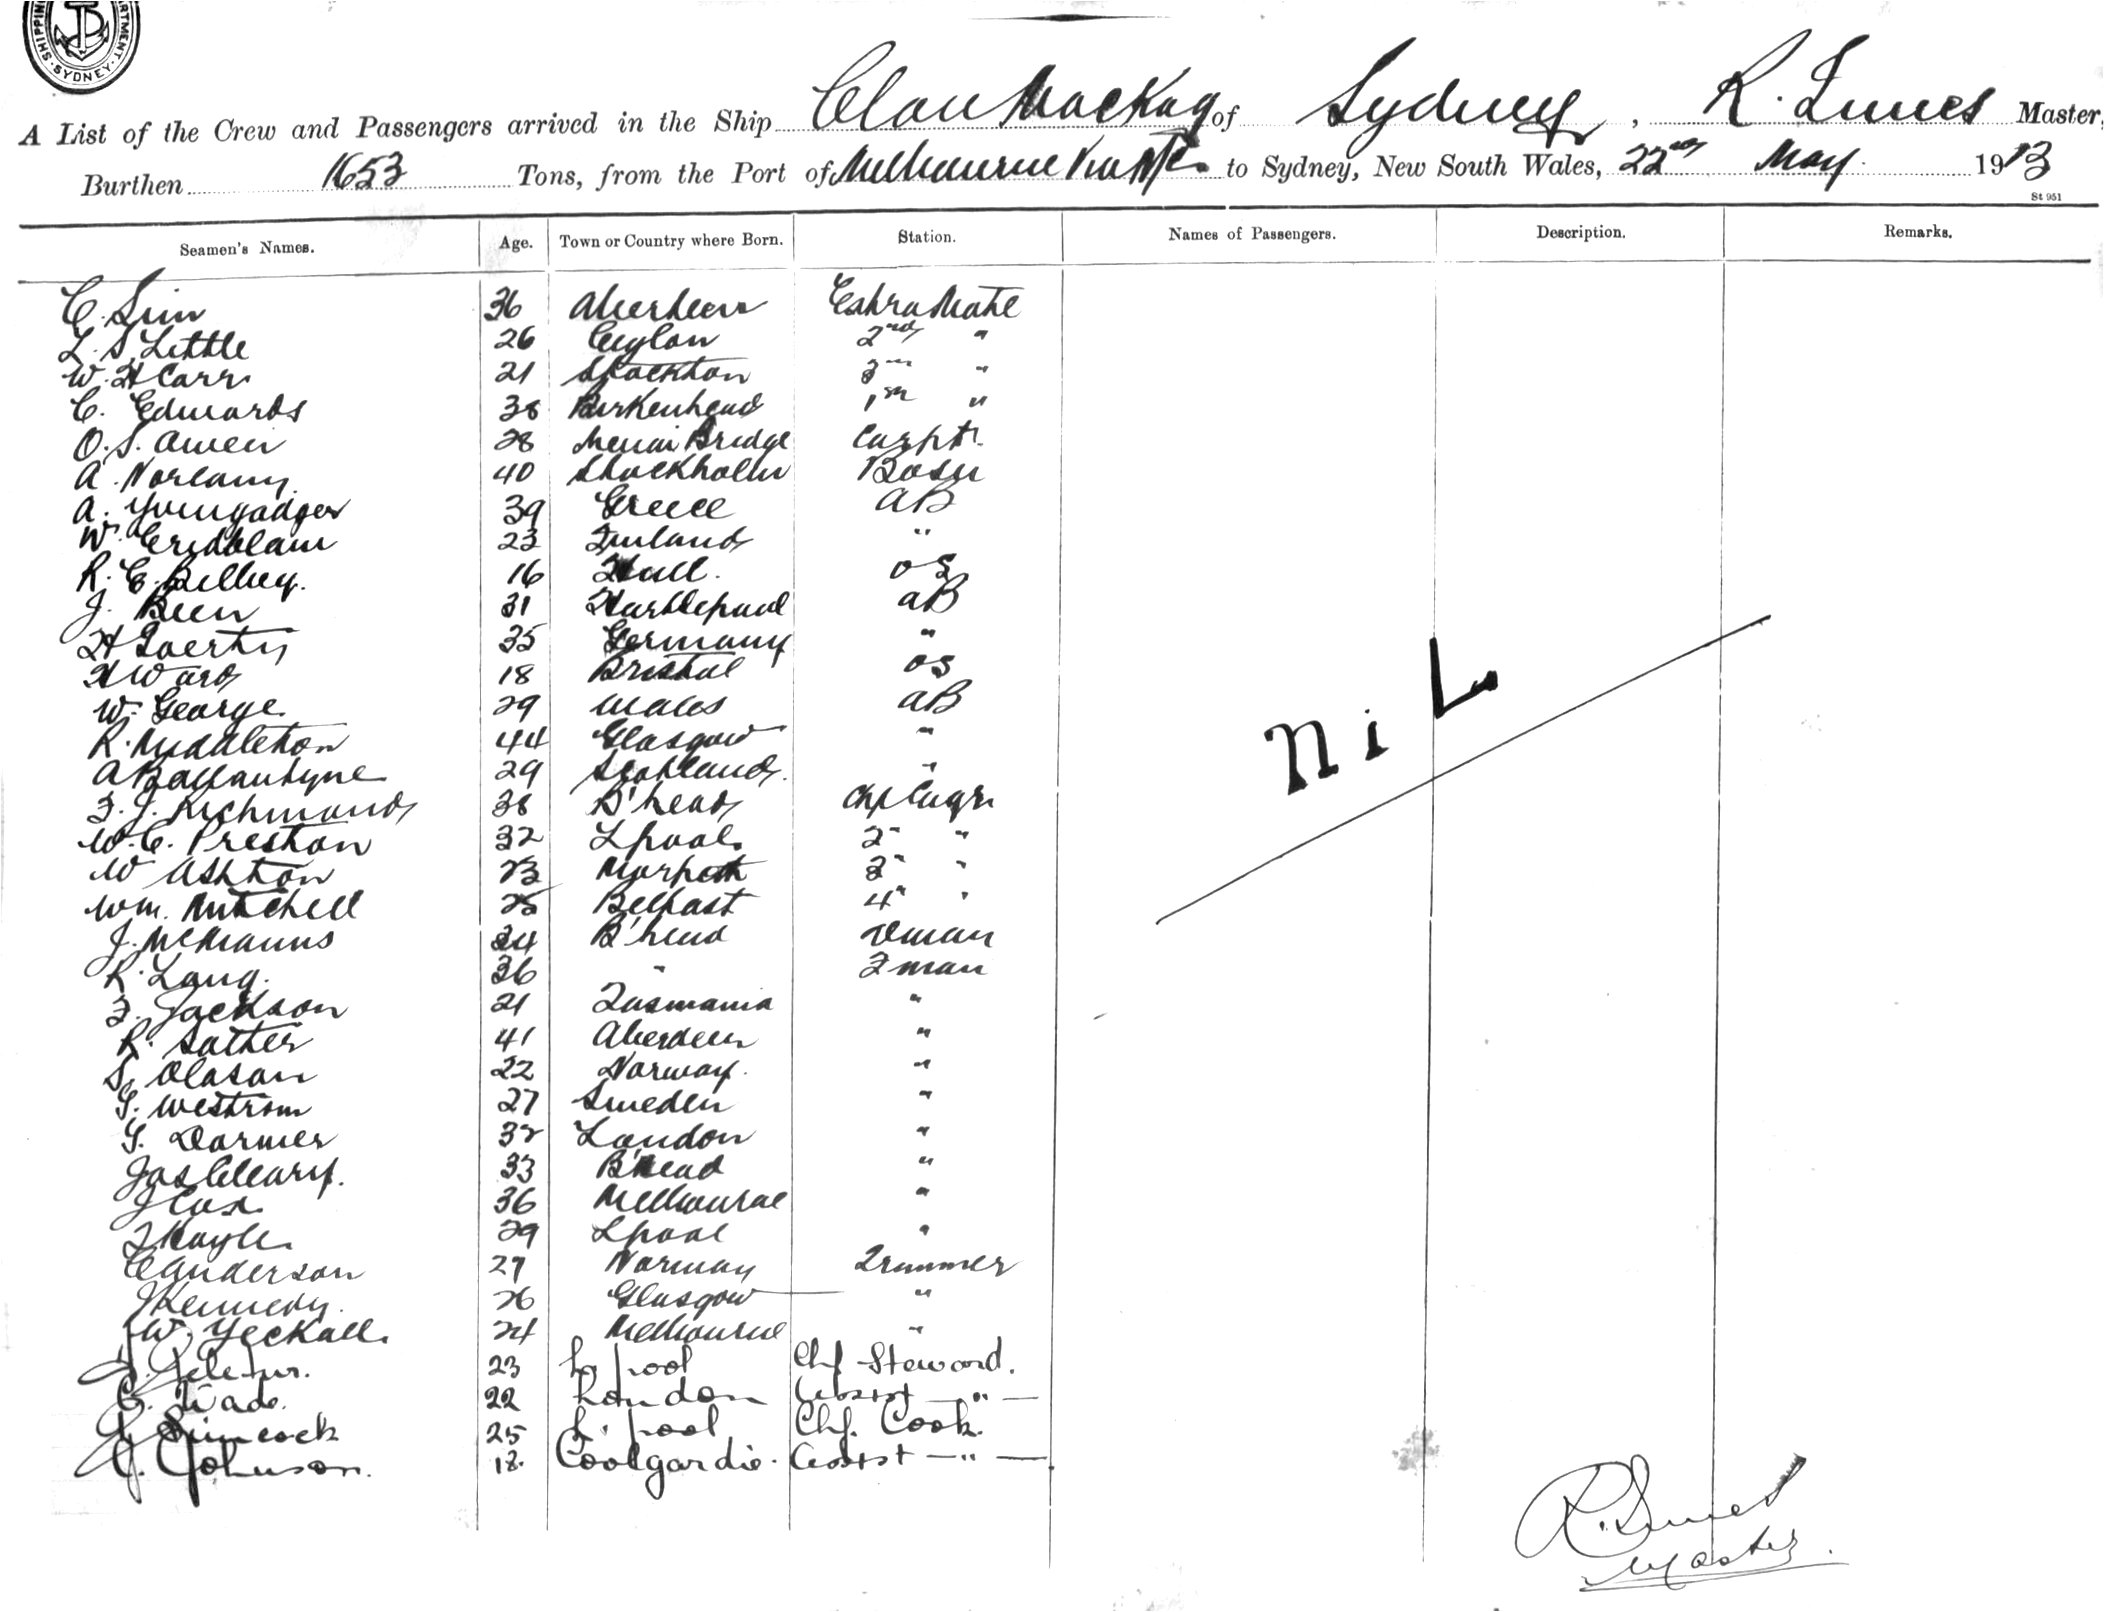 SHIPPING DEPARTMENT. SYDNEY.
A List of the Crew and Passengers arrived in the Ship Clan Mackay of Sydney, R. Innes Master,
Burthen 1653 Tons, from the Port of Melbourne via to Sydney, New South Wales, 22nd May 1913
St 951
Seamen's Names. Age. Town or Country where Born. Station. Names of Passengers. Description. Remarks.
C. Sim 36 Aberdeen Extra Mate
L. S. Little 26 Ceylon 2nd "
W. H Carr 21 Stockton 3rd "
C. Edwards 38 Birkenhead 1st "
O. S. Owen 28 Menai Bridge Carptr.
A. 40 Stockholm Bosn
A. 39 Greece AB
W. 23 Finland "
R. E. 16 Hull. OS
J. Been 31 Hartlepool AB
H 35 Germany "
H Ward 18 Bristol OS
W. George 29 Wales AB
R. Middleton 44 Glasgow "
A Ballantyne 29 Scotland "
F. J. Richmond 38 B'head Chf Engr
W. C. Preston 32 Lpool 2" "
W Ashton 23 Morpeth 3" "
Wm. Mitchell 25 Belfast 4" "
J. McManus 34 B'head
R. Lang. 36 " Fman
F. Jackson 21 Tasmania "
R. Sather 41 Aberdeen "
S. Olasan 22 Norway. "
G. Westrom 27 Sweden "
G. Dormer 32 London "
Jas Cleary. 33 B'head "
J Cox 36 Melbourne "
T Kayle 29 Lpool "
C Anderson 27 Norway Trimmer
J Kennedy. 26 Glasgow "
W. Yeckall 24 Melbourne "
23 L'pool Chf Steward.
C. Wade. 22 London Assist — " —
Simcock 25 L'pool Chf. Cook.
J. Johnson. 18. Coolgardie. Assist — " —
NiL
R. Innes
Master.